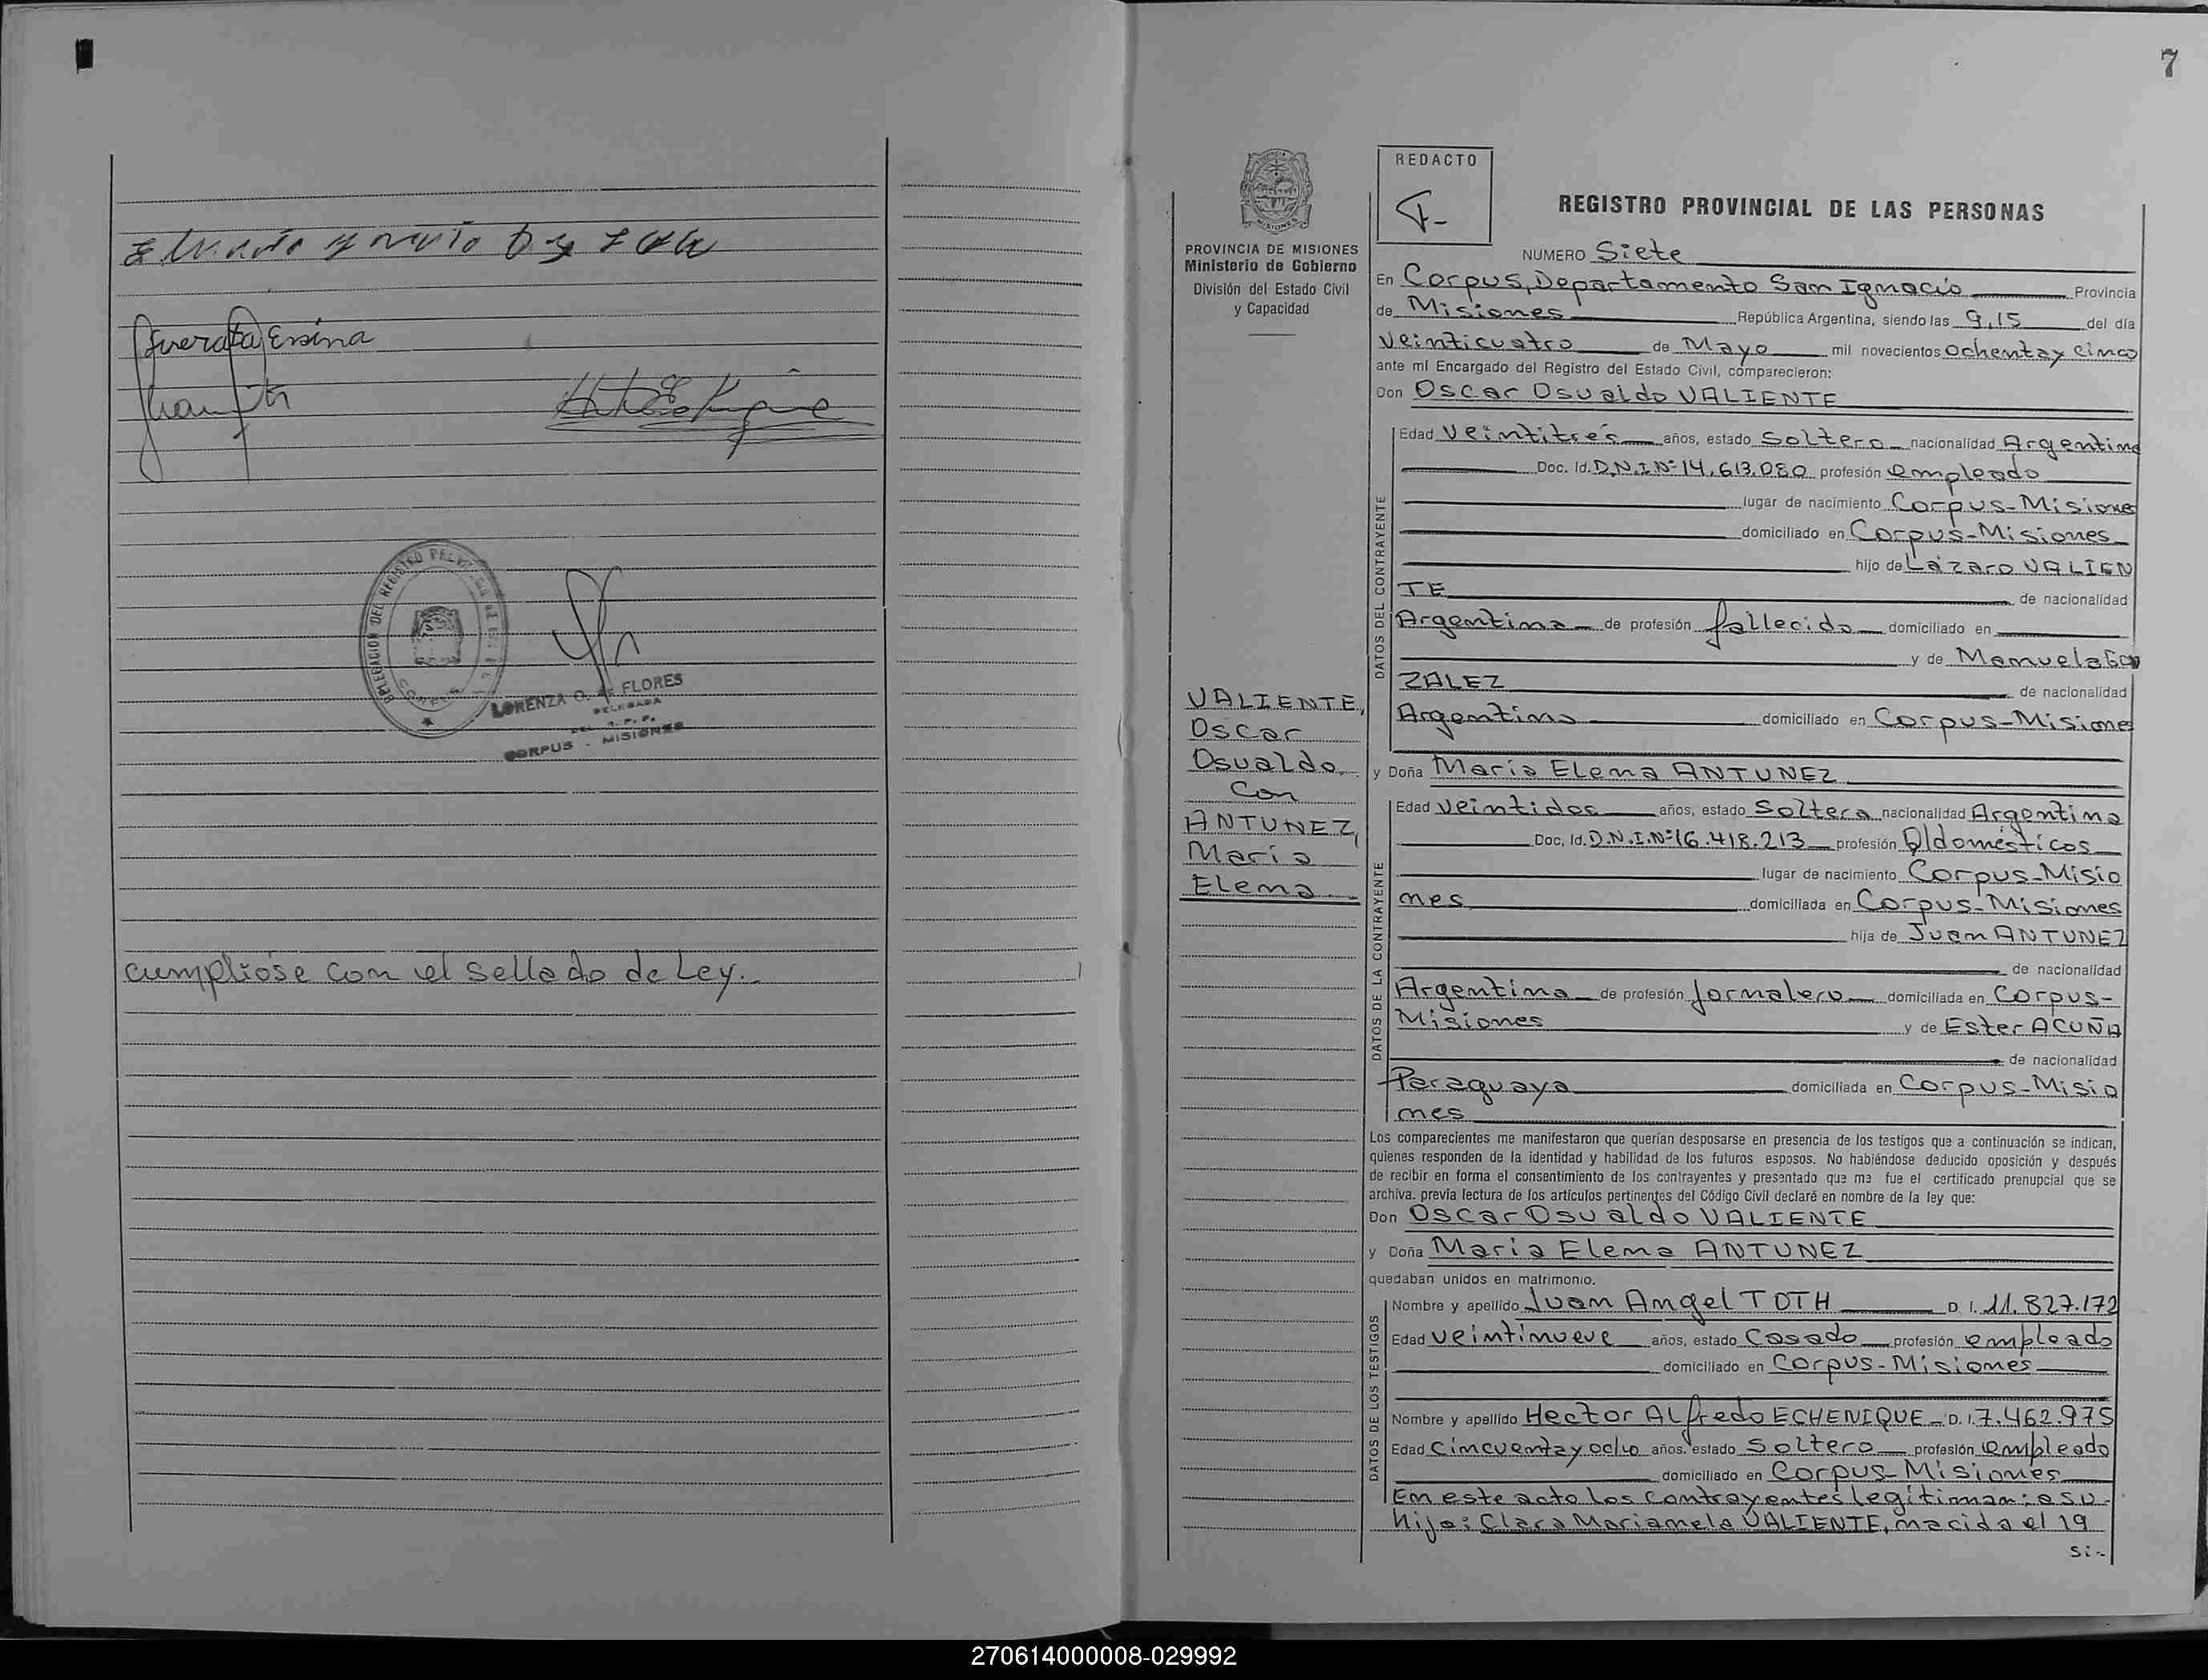 Ensina
DELEGACION DEL REGISTRO
CORPUS
LORENZA G. de FLORES
DELEGADA
DEL R. P. P.
CORPUS - MISIONES
cumpliose con el sellado de Ley.
7
PROVINCIA DE MISIONES
Ministerio de Gobierno
División del Estado Civil
y Capacidad
VALIENTE,
Oscar
Osvaldo
Con
ANTUNEZ,
Maria
Elena
REDACTO
REGISTRO PROVINCIAL DE LAS PERSONAS
NUMERO Siete
En Corpus, Departamento San Ignacio Provincia
de Misiones República Argentina, siendo las 9,15 del día
veinticuatro de Mayo mil novecientos ochenta y cinco
ante mí Encargado del Registro del Estado Civil, comparecieron:
Don Oscar Osvaldo VALIENTE
DATOS DEL CONTRAYENTE
Edad veintitrés años, estado Soltero nacionalidad Argentina
Doc. Id. D.N.I.Nº 14.613.080 profesión empleado
lugar de nacimiento Corpus-Misiones
domiciliado en Corpus-Misiones
hijo de Lázaro VALIEN
TE de nacionalidad
Argentina de profesión fallecido domiciliado en
y de Manuela Gon
ZALEZ de nacionalidad
Argentina domiciliado en Corpus-Misiones
y Doña Maria Elena ANTUNEZ
DATOS DE LA CONTRAYENTE
Edad veintidos años, estado Soltera nacionalidad Argentina
Doc. Id. D.N.I.Nº 16.418.213 profesión Q/domésticos
lugar de nacimiento Corpus-Misio
nes domiciliada en Corpus-Misiones
hija de Juan ANTUNEZ
de nacionalidad
Argentina de profesión Jornalero domiciliada en Corpus-
Misiones y de Ester ACUÑA
de nacionalidad
Paraguaya domiciliada en Corpus-Misio
nes
Los comparecientes me manifestaron que querían desposarse en presencia de los testigos que a continuación se indican,
quienes responden de la identidad y habilidad de los futuros esposos. No habiéndose deducido oposición y después
de recibir en forma el consentimiento de los contrayentes y presentado que me fue el certificado prenupcial que se
archiva. previa lectura de los artículos pertinentes del Código Civil declaré en nombre de la ley que:
Don Oscar Osvaldo VALIENTE
y Doña Maria Elena ANTUNEZ
quedaban unidos en matrimonio.
DATOS DE LOS TESTIGOS
Nombre y apellido Juan Angel TOTH D. I. 11.827.172
Edad veintinueve años, estado Casado profesión empleado
domiciliado en Corpus-Misiones
Nombre y apellido Hector Alfredo ECHENIQUE D. I. 7.462.975
Edad cincuenta y ocho años. estado Soltero profesión empleado
domiciliado en Corpus-Misiones
En este acto los contrayentes legitiman: a su
hija: Clara Marianela VALIENTE, nacida el 19
si-
270614000008-029992